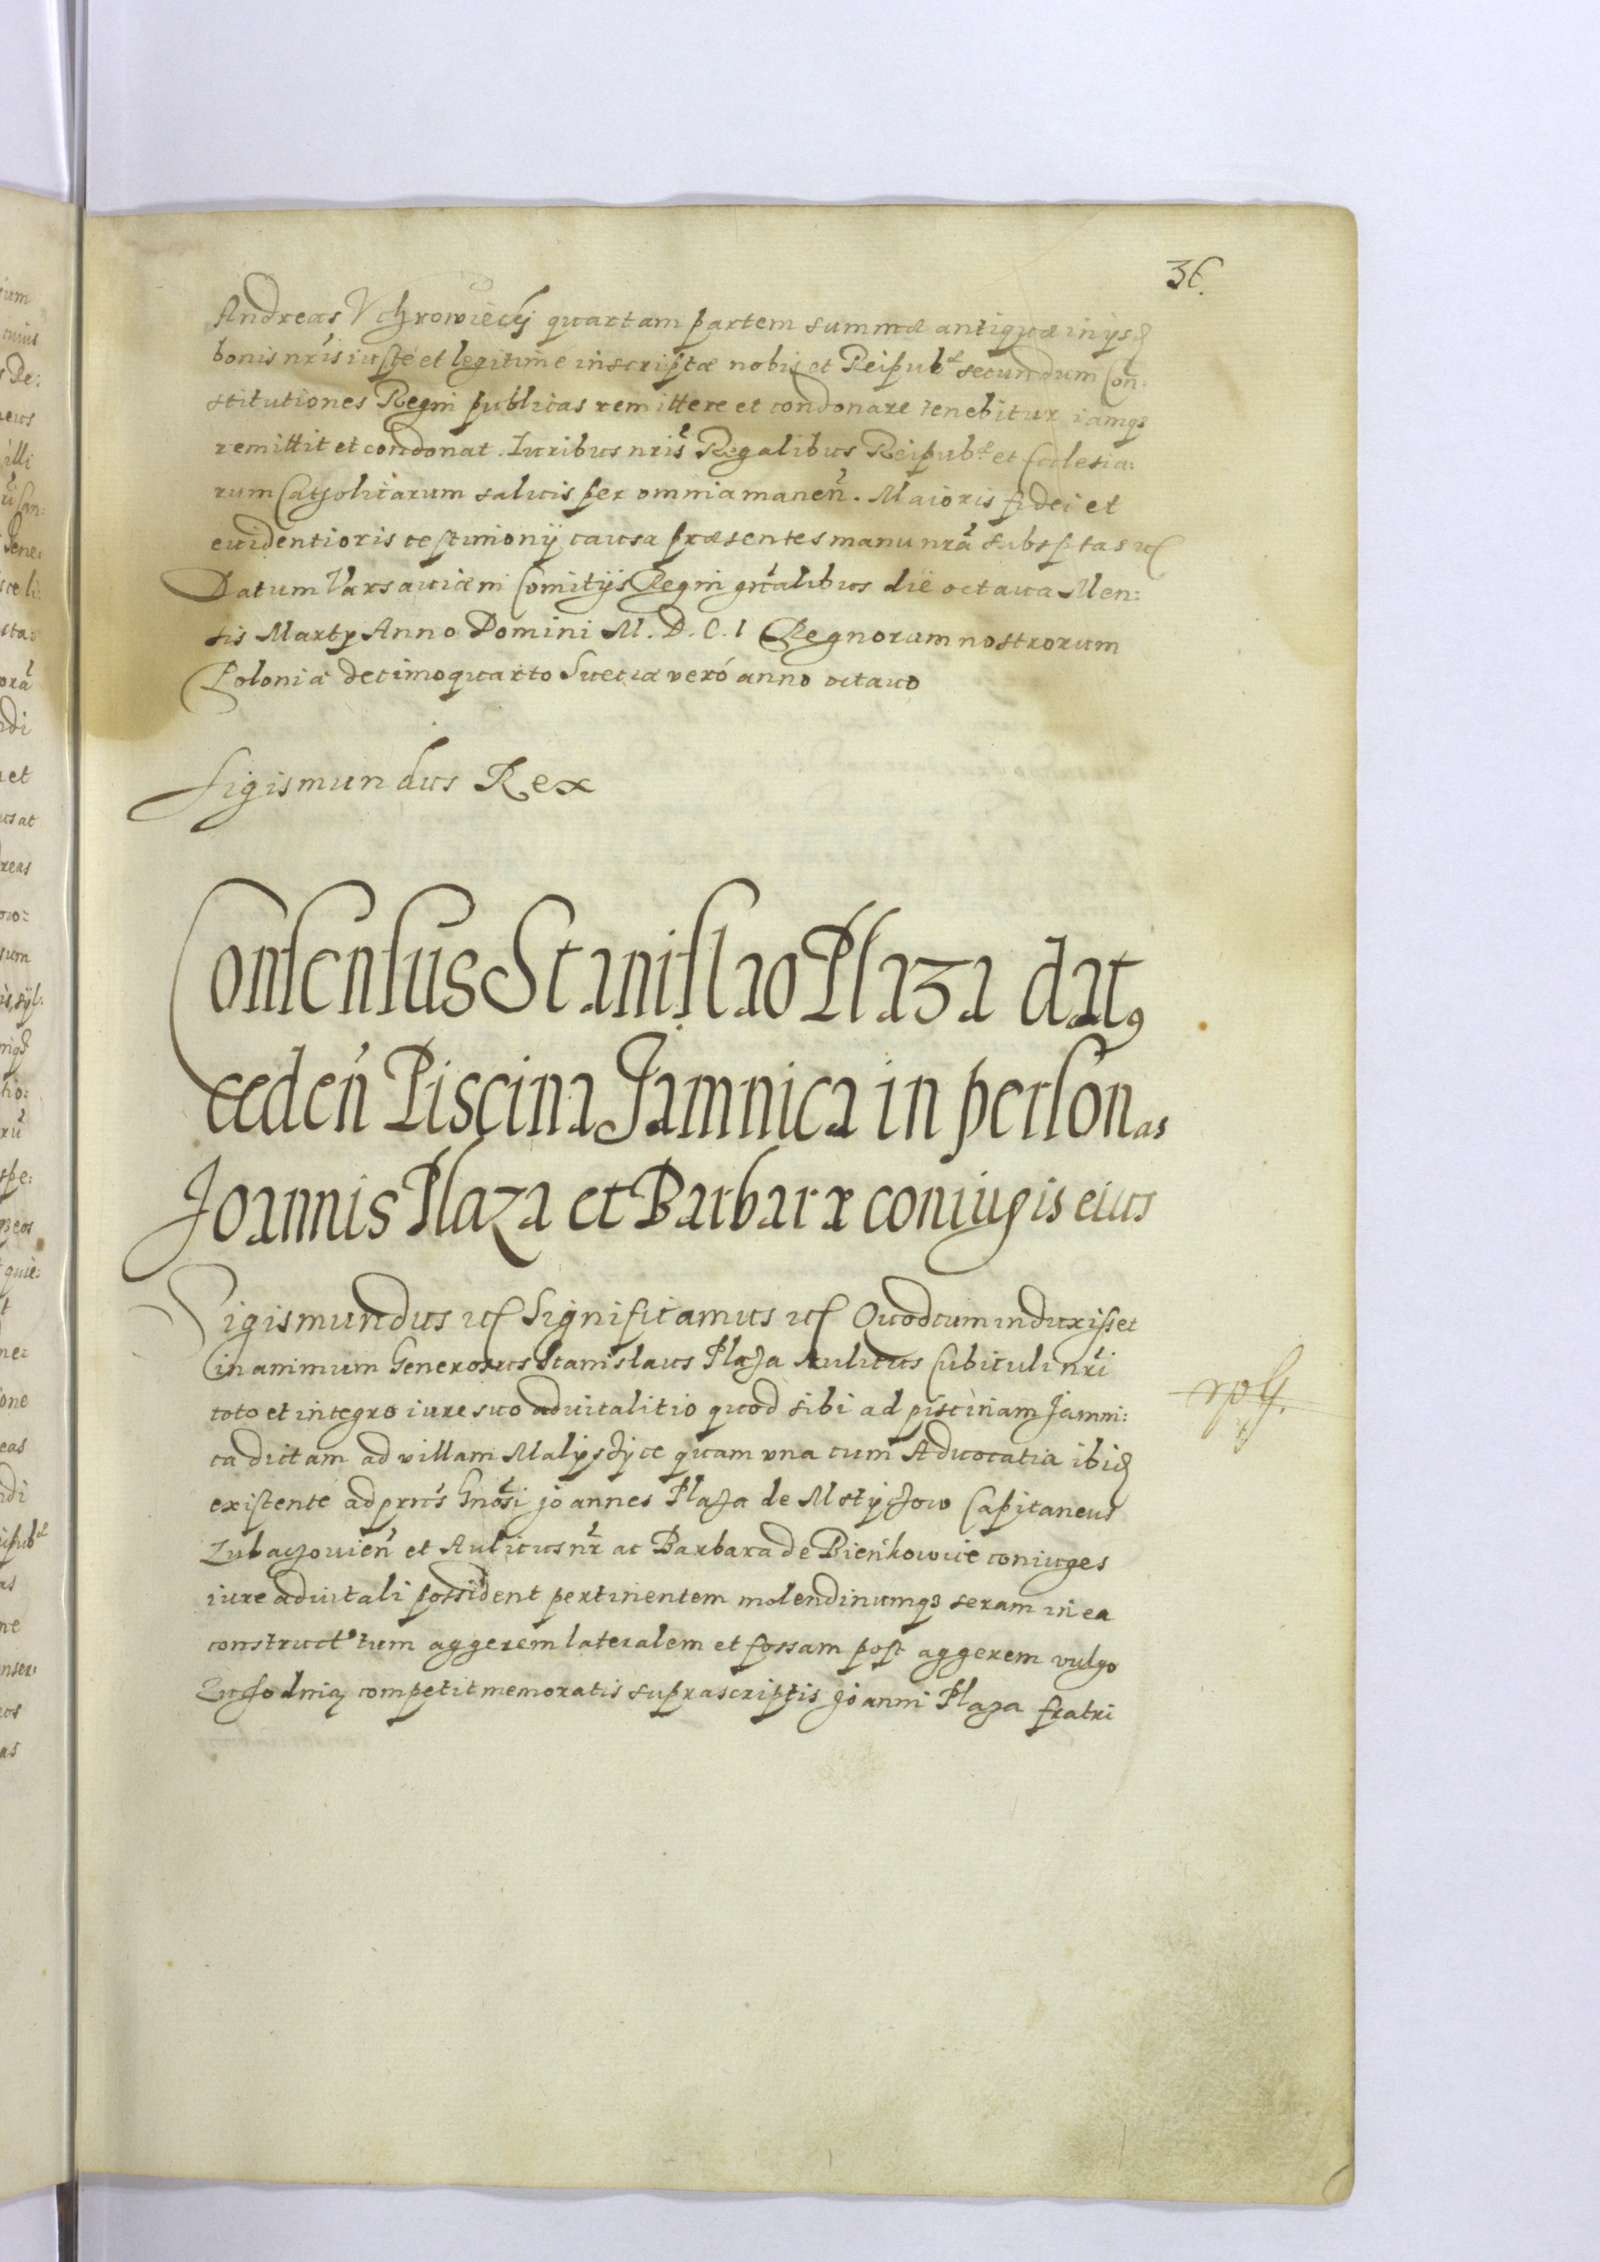 36.
Andreas Vchrowiecki quartam partem summæ antiquæ in ijsd
bonis nris iuste et legitime inscriptæ nobis et Reipub. secundum Con:
stitutiones Regni publicas remittere et condonare tenebitur iamq3
remittit et condonat. Iuribus nris Regalibus Reipub. et Ecclesia:
rum Catholicarum saluis per omnia manen. Maioris fidei et
euidentioris testimonij causa præsentes manu nra subsptas etc
Datum Varsauiæ in Comitijs Regni gnralibus die octaua Men:
sis Martij Anno Domini M. D. C. I Regnorum nostrorum
Poloniæ decimoquarto Sueciæ veró anno octauo
Sigismundus Rex
Consensus Stanislao Plaza dat9
ceden Piscina Jamnica in personas
Joannis Plaza et Barbaræ coniugis eius
Sigismundus etc Significamus etc Quod cum induxisset
in animum Generosus Stanislaus Plaza Aulicus Cubiculi nri
toto et integro iure suo aduitalitio quod sibi ad piscinam Jamni:
ca dictam ad villam Malyszyce quam vna cum Aduocatia ibid
existente ad prns Gnosi Joannes Plaza de Mstyczow Capitaneus
Lubaczouien et Aulicus nr ac Barbara de Bieńkowice coniuges
iure aduitali possident pertinentem molendinumq3 seram in ea
construct tum aggerem lateralem et fossam post aggerem vulgo
competit memoratis suprascriptis Joanni Plaza fratri